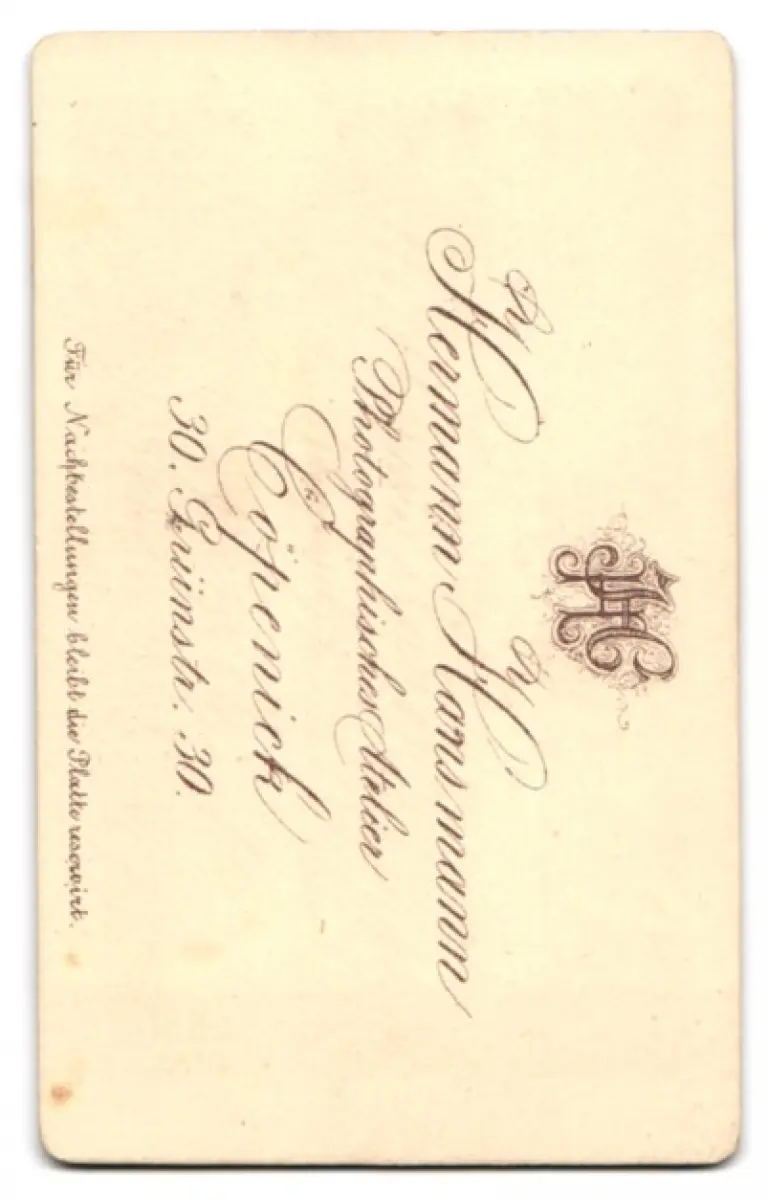 HH
Hermann Hansmann
Photographisches Atelier
Cöpenick
30. Grünstr. 30.
Für Nachbestellungen bleibt die Platte reservirt.